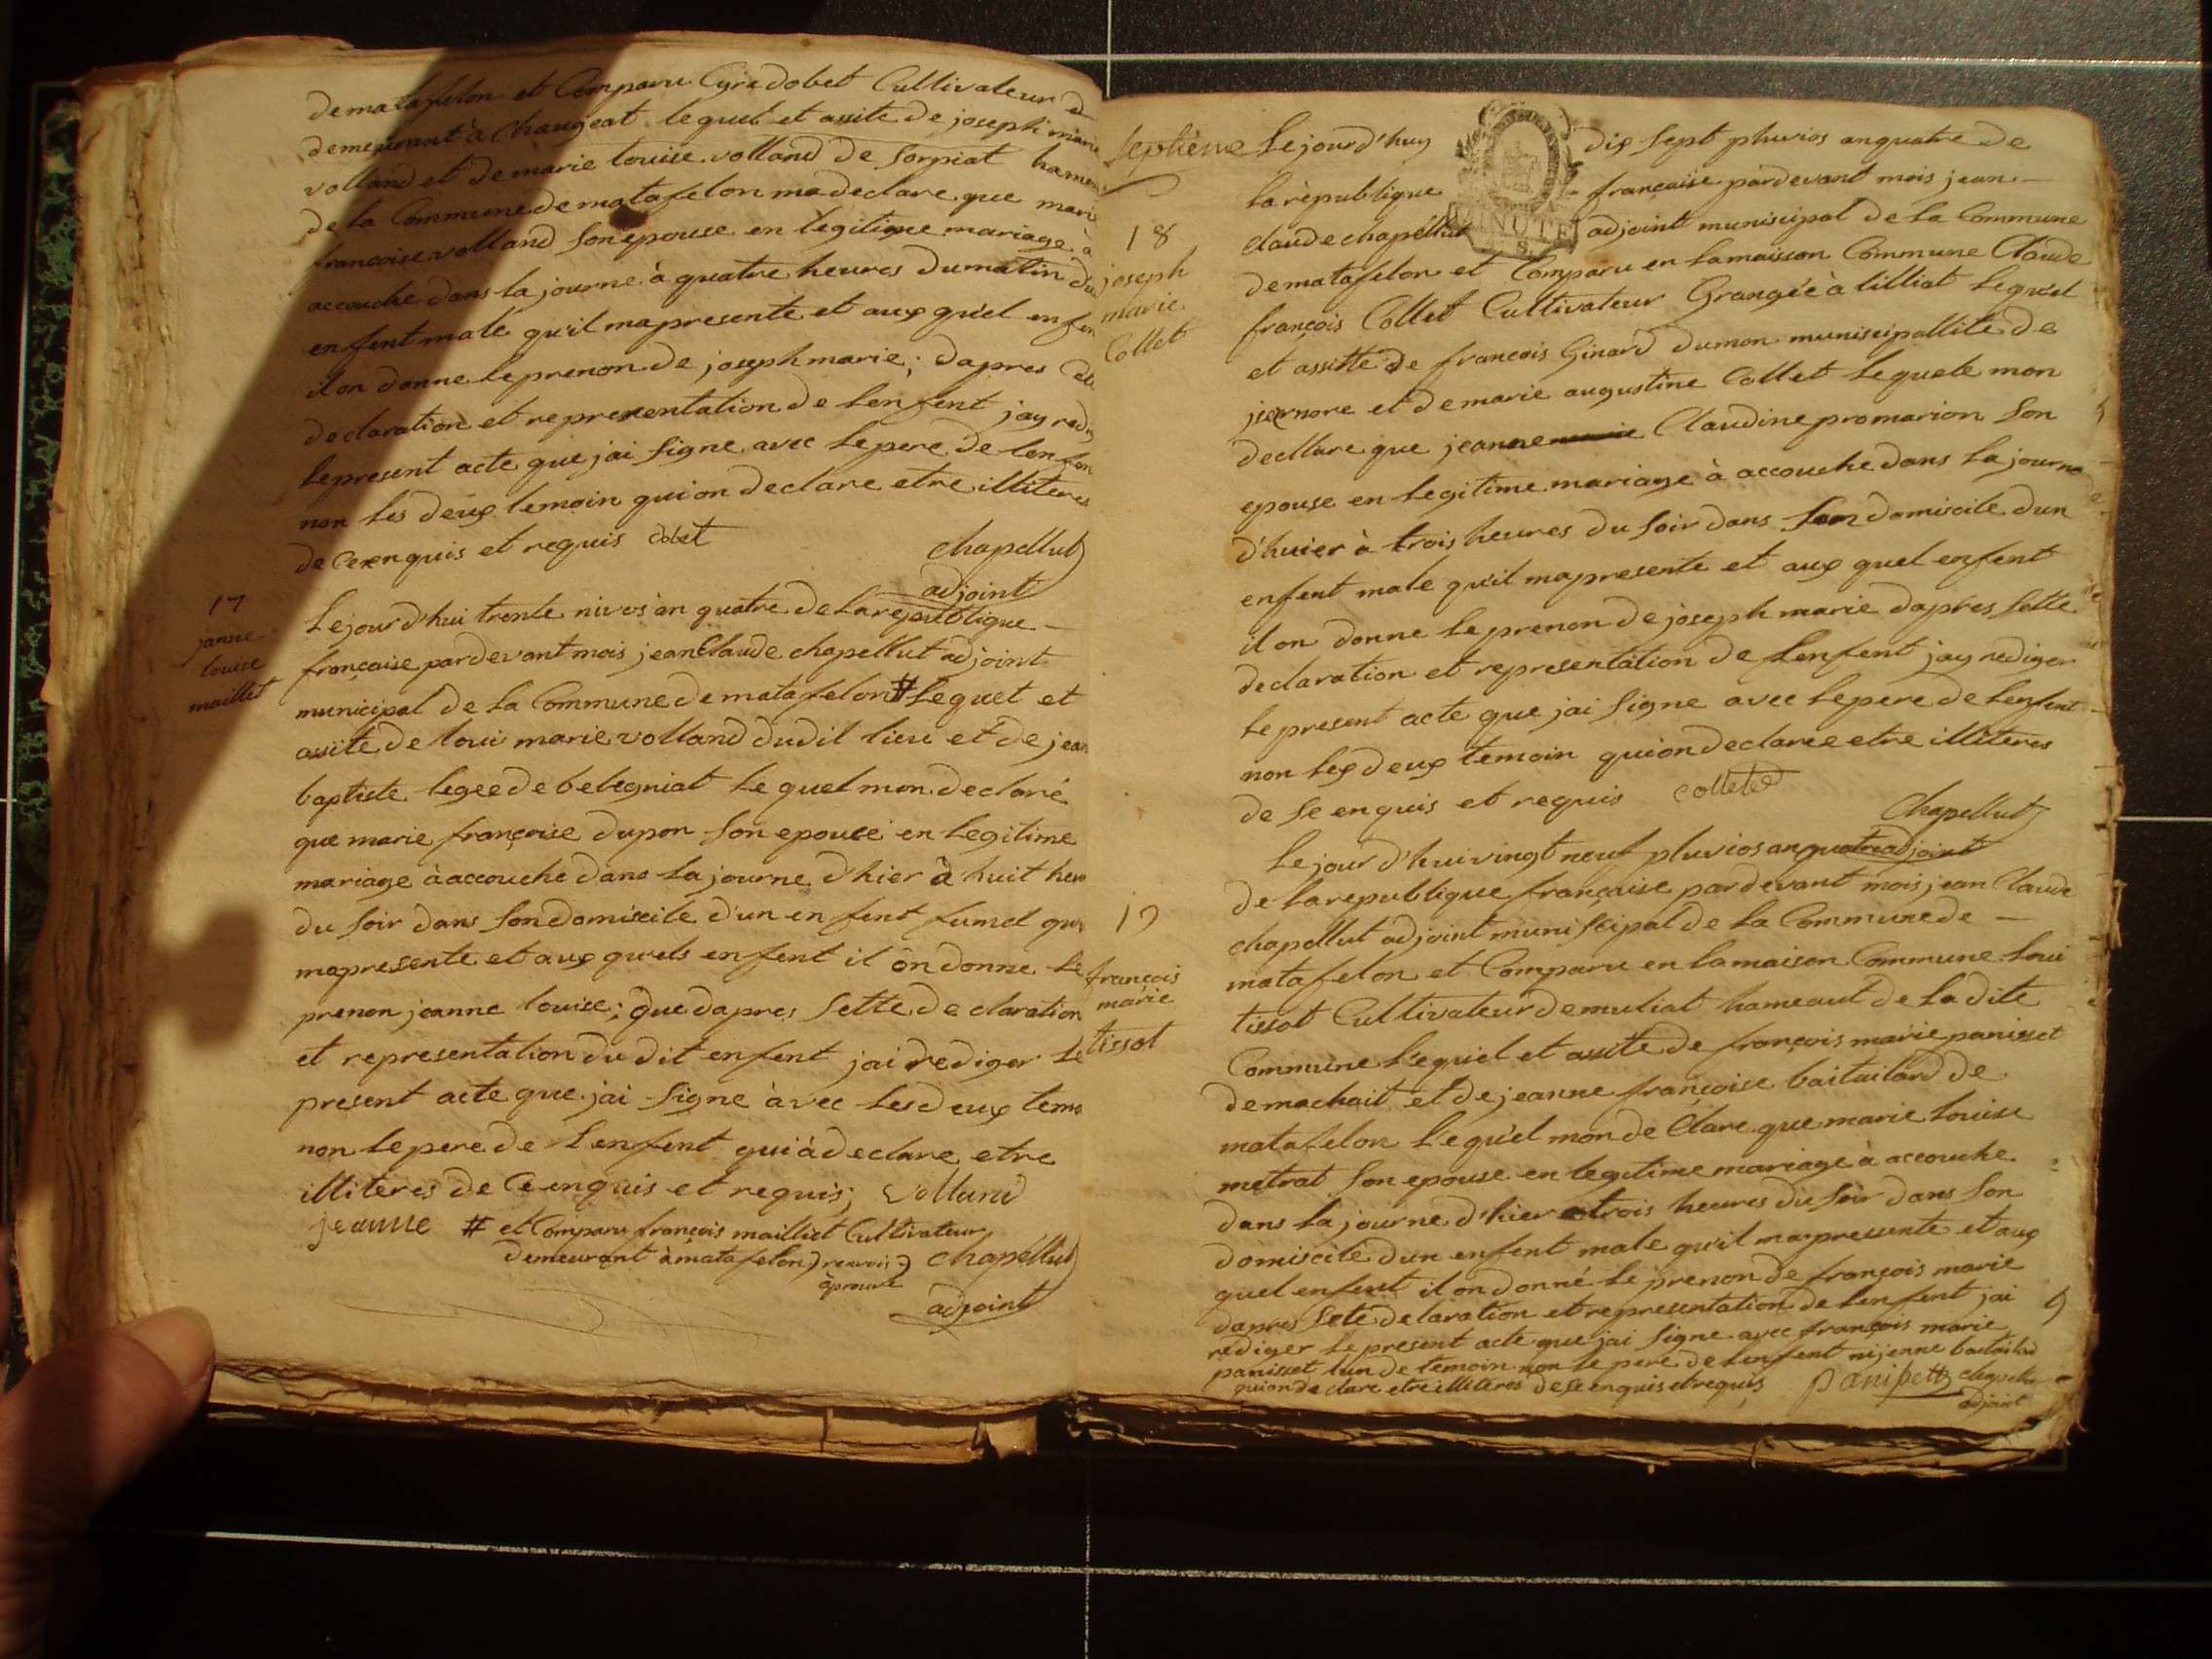 de matafelon et Comparu Cyre dobet Cultivateur
demeurant à Chaugeat lequel et assite de joseph marie
volland et de marie louise volland de sorpiat
de la Commune de matafelon ma declare que
francoise volland son epouse en legitime mariage à
accouche dans la journe à quatre heures du matin
enfent male qu'il mapresente et aux quel
il on donne le prenon de joseph marie; dapres
declaration et representation de lenfent jay
le present acte que jai signe avec le pere de
non les deux temoin qui on declare etre illiteres
de Ce enquis et requis dobet
chapellut
adjoint
17
janne
louise
maillet
Le jour d'hui trente nivos an quatre de la republique
française pardevant mois jean Claude chapellut adjoint
municipal de la Commune de matafelon # lequel et
assite de loui marie volland dudit lieu et de jean
baptiste legee de belegniat le quel mon declaré
que marie françoise dupon son epouse en legitime
mariage à accouche dans la journe d'hier à huit
du soir dans son domiscile d'un enfent fumel
mapresente et aux quels enfent il on donne le
prenon jeanne louise; que dapres sette declaration
et representation du dit enfent jai rediger le
present acte que jai signe àvec les deux
non le pere de lenfent qui à declare etre
illiteres de Ce enquis et requis; Volland
jeanne # et Comparu françois maillet Cultivateur
demeurant à matafelon) renvois
aprouve
chapellut
adjoint
septieme
Le jour d'huy dix sept pluvios an quatre de
MINUTE
la republique française pardevant mois jean
18
joseph
marie
Collet
claude chapellut adjoint municipal de la Commune
de matafelon et Comparu en la maison Commune Claude
françois Collet Cultivateur Grangée à lilliat lequel
et assitte de francois Ginard dumon muniscipallite de
et de marie augustine Collet lequele mon
decllare que jeanne Claudine promarion son
epouse en legitime mariage à accouche dans la journe
d'huier à trois heures du soir dans son domiscile dun
enfent male qu'il mapresente et aux quel enfent
il on donne le prenon de joseph marie dapres sette
declaration et representation de lenfent jay rediger
le present acte que jai signe avec le pere de lenfent
non les deux temoin qui on declaree etre illiteres
de se enquis et requis collet
Chapellut
adjoint
19
francois
marie
tissot
Le jour d'hui vingt neuf pluvios an quatre
de la republique française pardevant mois jean Claude
chapellut adjoint muniscipal de la Commune de
matafelon et Comparu en la maison Commune loui
tissot Cultivateur de muliat hameaut de la dite
Commune lequel et assite de françois marie panisset
de machait et de jeanne françoise baitailard de
matafelon lequel mon de Clare que marie louise
metrat son epouse en legitime mariage à accouche
dans la journe d'hier trois heures du soir dans son
domiscile dun enfent male qu'il mapresente et aux
quel enfent il on donné le prenon de françois marie
dapres sete delaration et representation de lenfent jai
rediger le present acte que jai signe avec françois marie
panisset lun de temoin non le pere de lenfent ni jenne
qui on de clare etre illiteres de se enquis et requis
adjoint